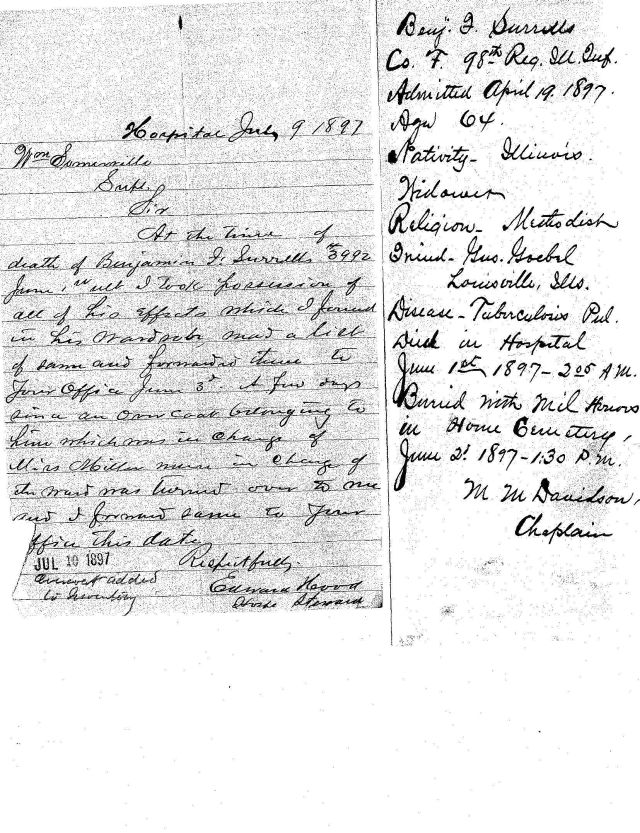 Hospital July 9 1897
Wm Somerville
Supt.
Sir
At the time of
death of Benjamin F. Surrells № 3992
June 1st ult I took possession of
all of his effects which I found
in his wardrobe mad a list
of same and forwarded them to
your Office June 3d. A few days
since an over coat belonging to
him which was in charge of
Miss Miller nurse in charge of
the ward was turned over to me
and I forward same to your
office this date
JUL 10 1897
Respectfully.
overcoat added
to Inventory
Edward Hood
Steward
Benj. F. Surrells
Co. F. 98th Reg. Ill. Inf.
Admitted April 19. 1897.
Age 64.
Nativity- Illinois.
Widower
Religion- Methodist
Friend- Gus. Goebel
Louisville, Ills.
Disease- Tuberculosis Pul.
Died in Hospital
June 1st 1897- 2 05 A.M.
Buried with Mil Honors
in Home Cemetery,
June 2d 1897- 1:30 P.M.
M M Davidson,
Chaplain